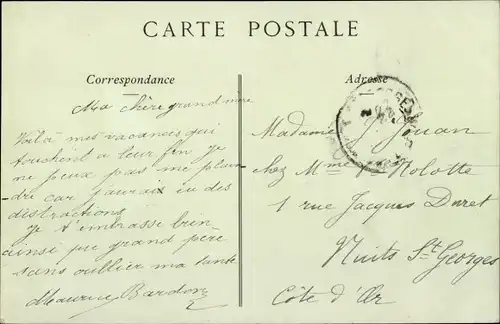 CARTE POSTALE
Correspondance
Ma Chère grand mère
Voilà mes vacances qui
touchent a leur fin Je
ne peux pas me plain
dre car j'aurais eu des
distractions
Je t'embrasse bien
ainsi que grand père
sans oublier ma tante
Maurice Bardon
Adresse
Madame Jouan
chez Mme Vve Rolotte
1 rue Jacques Duret
Nuits St Georges
Côte d'Or